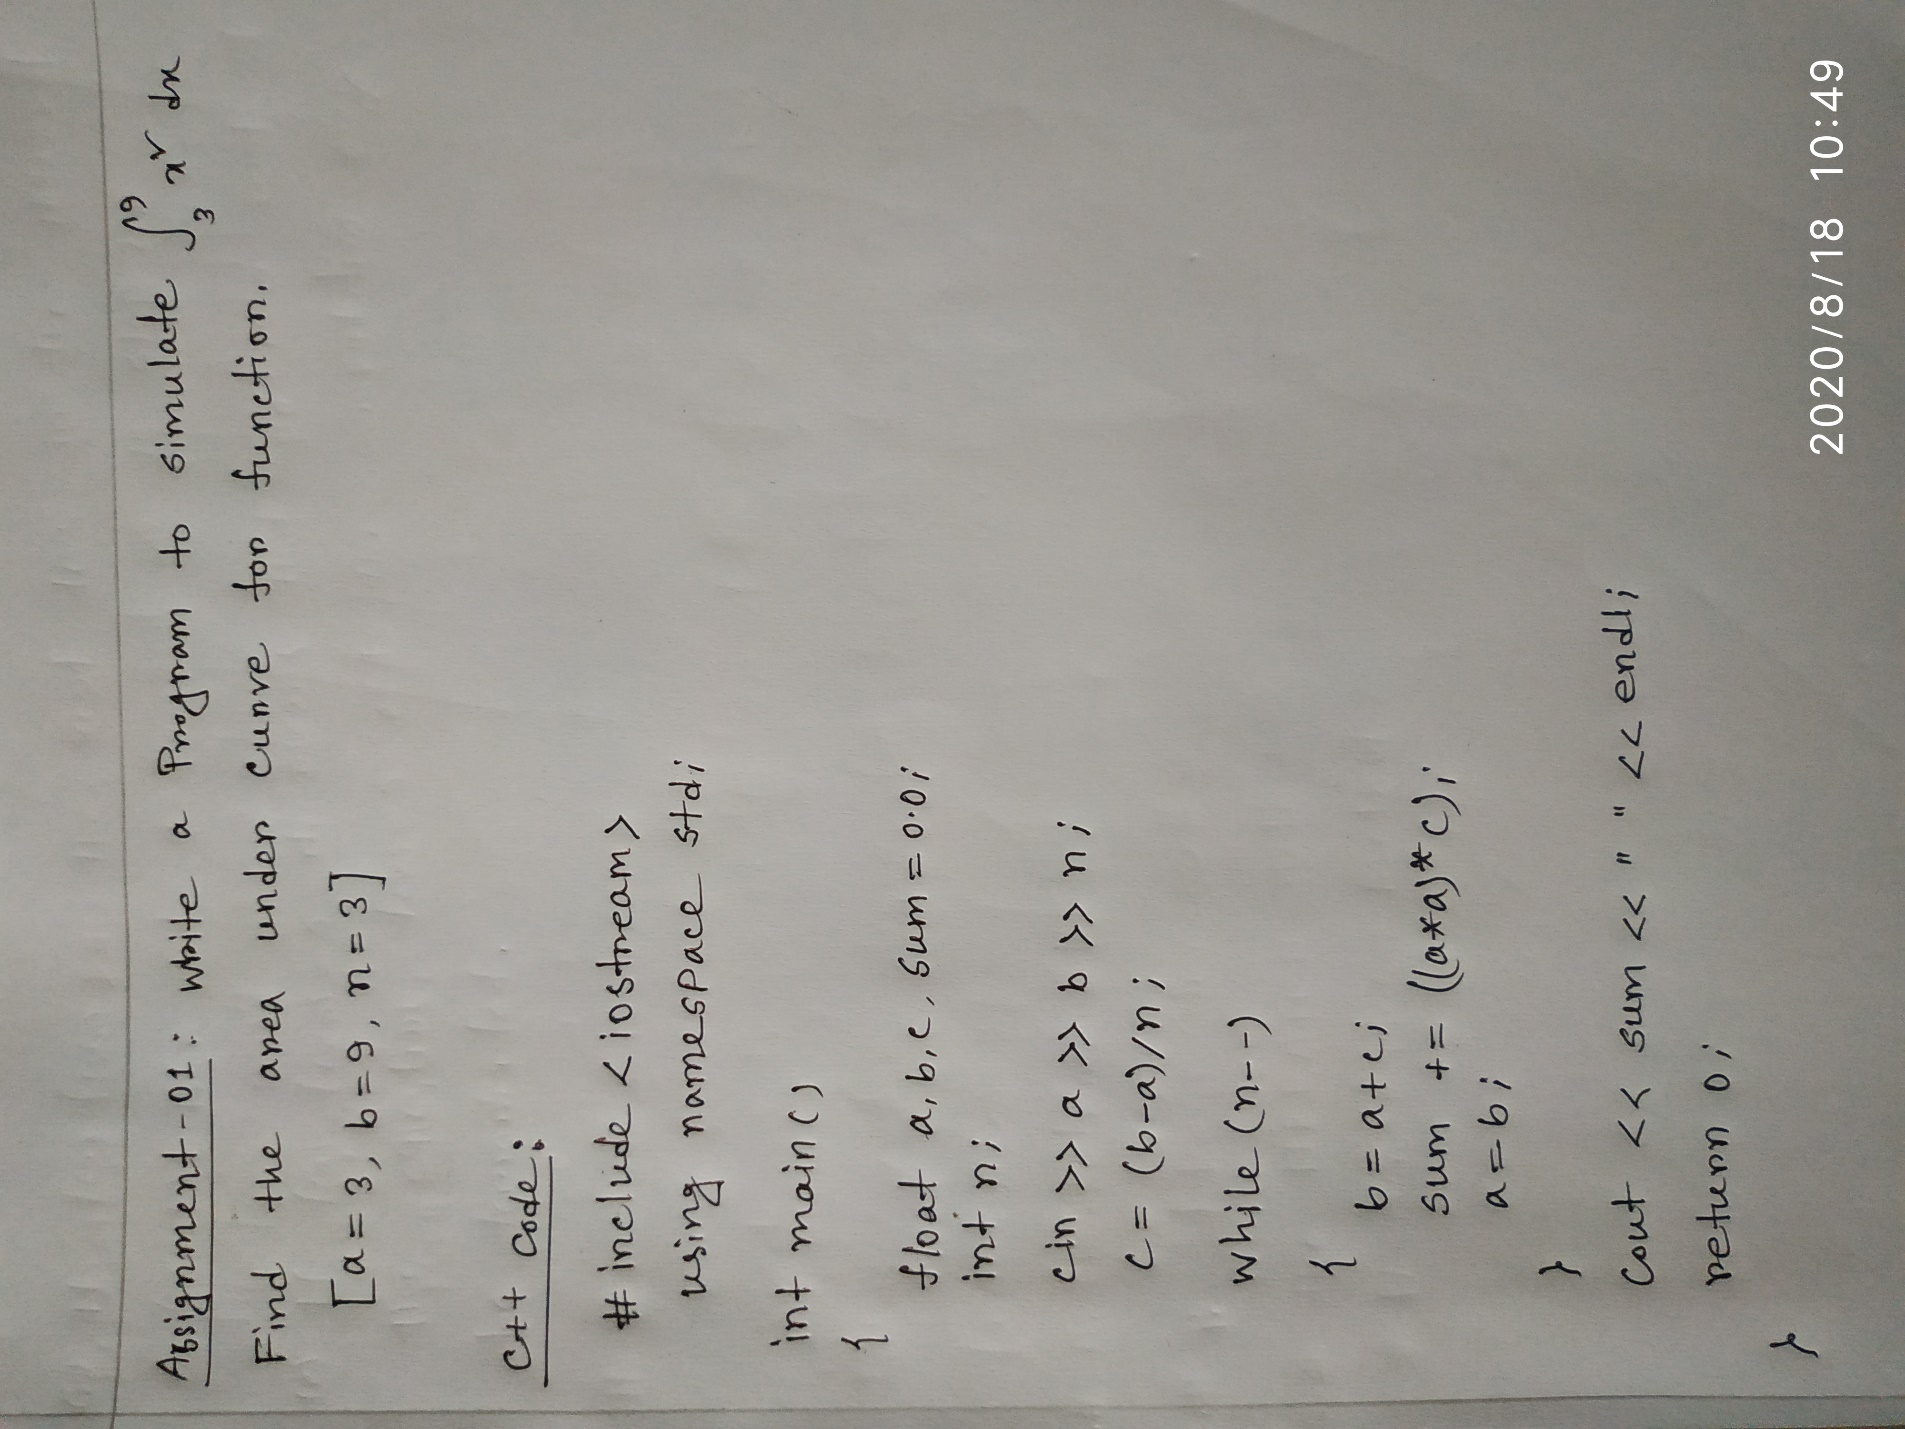 Assignment-01: write a Program to simulate ∫₃⁹ x² dx
Find the area under curve for function.
[a=3, b=9, n=3]
C++ Code:
# include <iostream>
using namespace std;
int main()
{
float a, b, c, sum = 0.0;
int n;
cin >> a >> b >> n;
c = (b-a)/n;
while (n--)
{
b = a+c;
sum += ((a*a)*c);
a = b;
}
cout << sum << " " << endl;
return 0;
}
2020/8/18 10:49